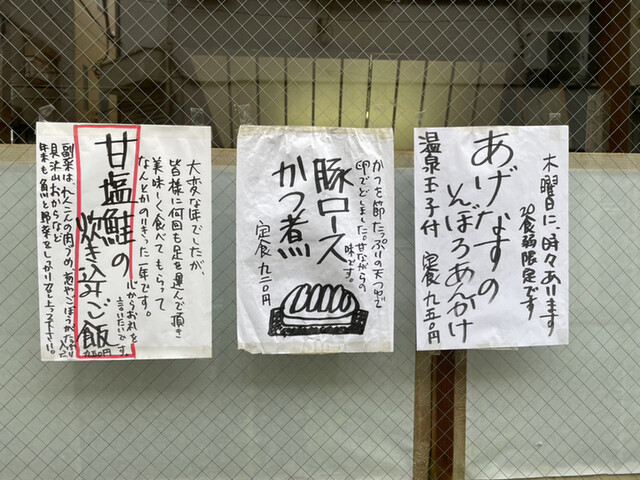 木曜日に、時々あります
20食前限定です
あげなすの
そんぼろあんかけ
温泉玉子付 定食 九五〇円
かつを節たっぷりの天つゆで
卵でとじました。昔ながらの
味です。
豚ロース
かつ煮
定食 九二〇円
大変な年でしたが、
皆様に何回も足を運んで頂き
美味しく食べてもらって
なんとかのりきった一年です。
心からお礼を
言いたいです。
甘塩鮭の
炊き込みご飯
九五〇円
副菜は、れんこんの肉
具沢山おからなど
年末も魚と野菜をしっかり召し上って下さい。